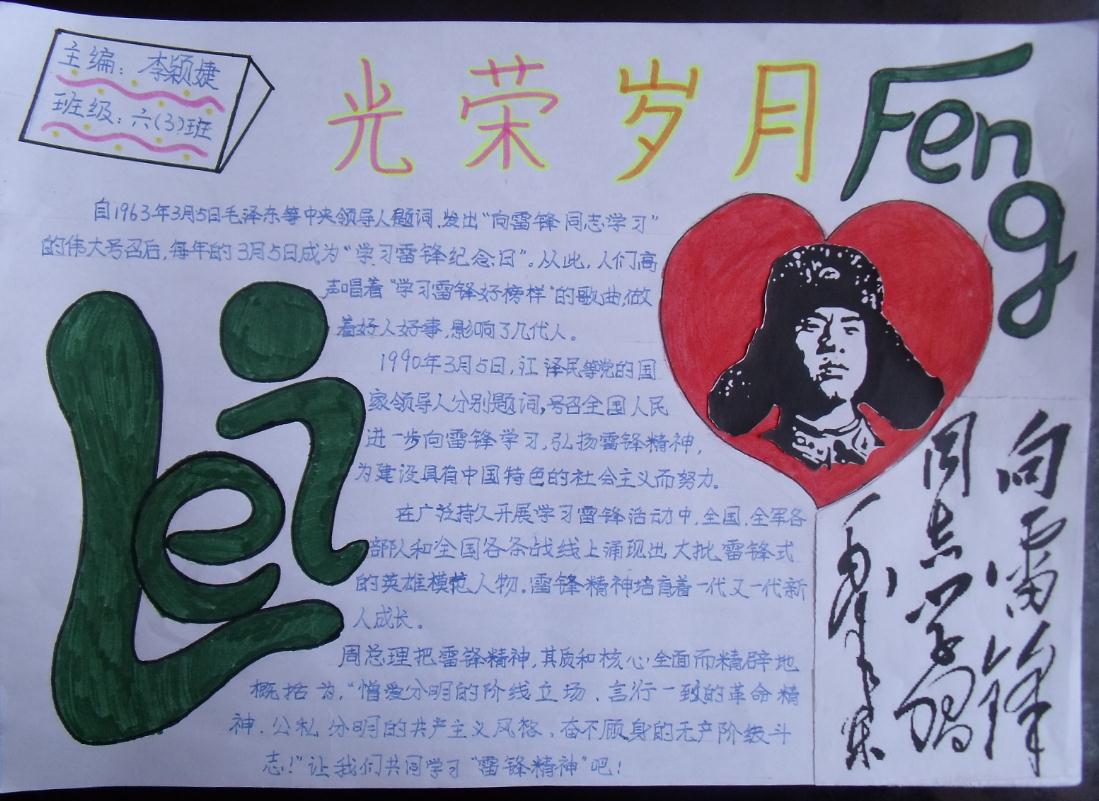 主编：李颖婕
班级：六(3)班
光荣岁月
Feng
自1963年3月5日毛泽东等中央领导人题词，发出“向雷锋同志学习”
的伟大号召后，每年的3月5日成为“学习雷锋纪念日”。从此，人们高
声唱着“学习雷锋好榜样”的歌曲，做
着好人好事，影响了几代人。
1990年3月5日，江泽民等党的国
家领导人分别题词，号召全国人民
进一步向雷锋学习，弘扬雷锋精神，
为建设具有中国特色的社会主义而努力。
在广泛持久开展学习雷锋活动中，全国．全军各
部队和全国各条战线上涌现出大批雷锋式
的英雄模范人物．雷锋精神培育着一代又一代新
人成长。
周总理把雷锋精神，其质和核心全面而精辟地
概括为，“憎爱分明的阶线立场．言行一致的革命精
神．公私分明的共产主义风格、奋不顾身的无产阶级斗
志！”让我们共同学习“雷锋精神”吧！
Lei
向雷锋
同志学习
毛泽东